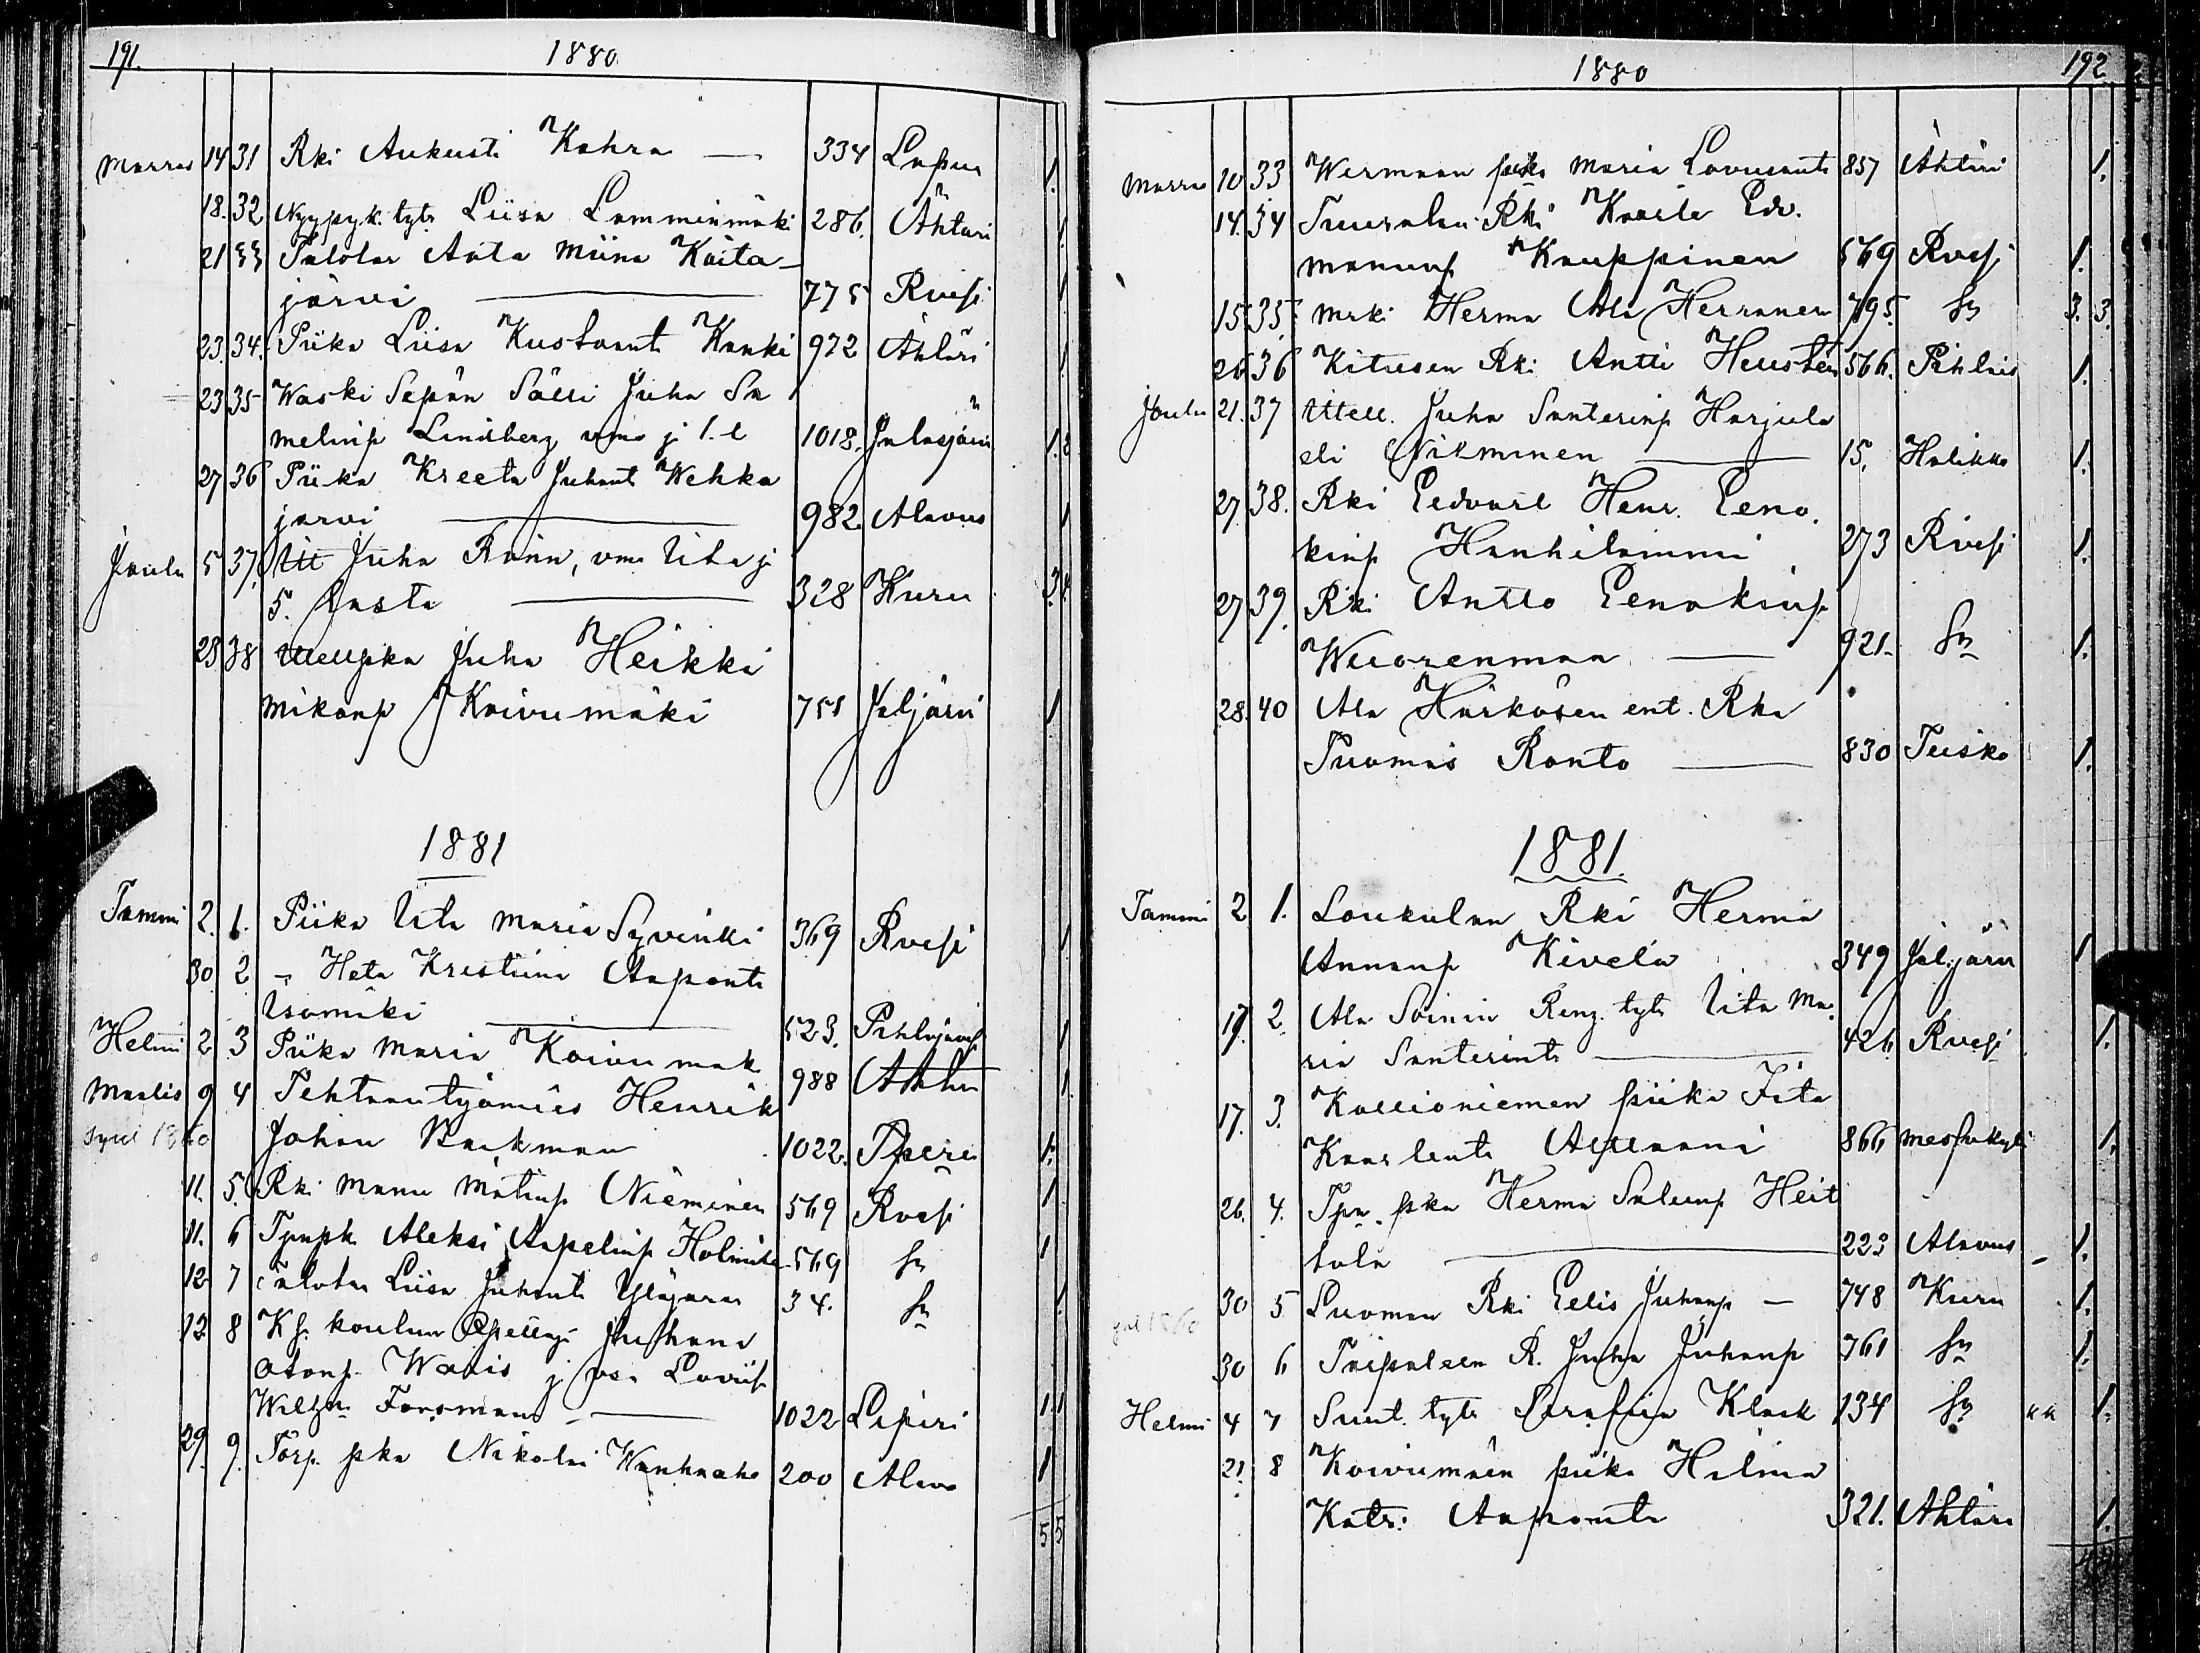 191. 1880.
Marras 14 31 Rki Aukusti Kahra — 334 Lapua 1.
18. 32 tytr Liisa Lamminmäki 286. Ähtäri 1
21 33 Talolas Anta Miina Käita- 
järvi — 775 Rvesi 1
23. 34. Piika Liisa Kustaant Kaaki 972 Ähtäri 1
23 35 Waski Sepän Sälli Juha Sa
melinp Lindberg vmo j 1. l 1018. Jalasjärvi 1.
27 36 Piika Kreeta Juhant Wehka
järvi — 982 Alavus 1
Joulu 5 37. Itt Juha Rann, vmo Uita j
5. Lasta — 328 Kuru 3.4
28 38 Juha Heikki
Mikonp Koivumäki 751 Jaljärvi 1
1881
Tammi 2. 1. Piika Uita Maria Syvinki 369 Rvesi 1
30 2 - Heta Kristiina Aapont
Isomäki — 523. Pihlajavesi 1
Helmi 2 3 Piika Maria Koivumäk 988 Ähtäri 1
Maalis 9 4 Tehtaantyömies Henrik
Johan Backman 1022. Tpere 1.
11. 5. Rki Manu Matinp Nieminen 569 Rvesi 1
11. 6 Aleksi Aapelinp Holmila 569 Sn 1
12 7 Talolas Liisa Juhant Yläjärvi 34. Sn 1.
12 8 Ks. koulun Opettaj Juhana
Otonp. Waris j vsa Loviis
Wilhn Forsman — 1022 Lipiri 1 1
29. 9. Torp. pka Nikolai Wanhaaho 200 Alavo 1
5 5
1880 192
Marras 10 33 Wermaan piika Maria Loviisant 857 Ähtäri 1.
14. 34 Tuuralan Rki Kaale Edv.
manunp Kauppinen 569 Rvesi 1.
15 35. Mrki Herma Ala Herranen 795. Sn 3. 3.
26 36 Kitusen Rki Antti Heusten 566. Pihlais 1.
Joulu 21. 37 Juha Santerinp Harjula
eli Nikminen — 15. Halikko 1.
27. 38. Rki Eedvart Henr. Eeno.
kinp Hanhilammi 273 Rvesi 1.
27 39. Rki Antto Eenokinp
Wuorenmaa — 921. Sn 1.
28. 40 Ala Härkösen ent. Rka
Tuomas Ronto — 830 Teisko 1.
1881.
Tammi 2 1. Loukulan Rki Herma
Annanp Kivelä 349 Jaljärvi 1
17. 2. Ala Soinin Reng. tytr Uita Ma-
ria Santerint — 426 Rvesi 1.
17. 3. Kallioniemen piika Iita
Kaarlent 866 Messukylä 1.
26. 4. Tpn. pka Herma Salunp Heit
tola — 223 Alavus 1.
30 5 Luoman Rki Eelis Juhanp — 748 Kuru 1.
30 6 Taipaleen R. Juha Juhanp 761 Sn 1.
Helmi 4 7 Suut. tytr Serafiia Klack 134 Sn 1.
21. 8 Koivumäen piika Hilma
Katr. Aapront 321. Ähtäri 1.